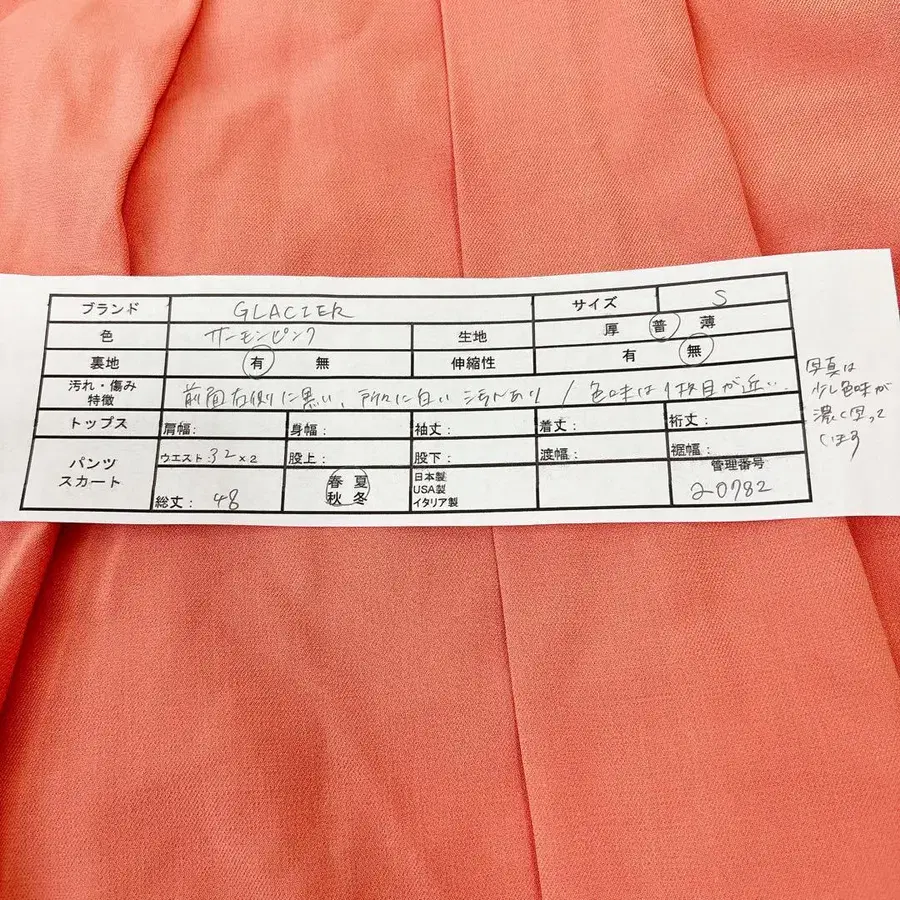 ブランド GLACIER サイズ S
色 サーモンピンク 生地 厚 普 薄
裏地 有 無 伸縮性 有 無
汚れ・傷み
特徴
前面右側に黒い、所々に白い汚れあり / 色味は1枚目が近い
トップス 肩幅: 身幅: 袖丈: 着丈: 裄丈:
パンツ
スカート
ウエスト:32×2 股上: 股下: 渡幅: 裾幅:
総丈: 48
春 夏
秋 冬
日本製
USA製
イタリア製
管理番号
20782
写真は
少し色味が
濃く写って
います